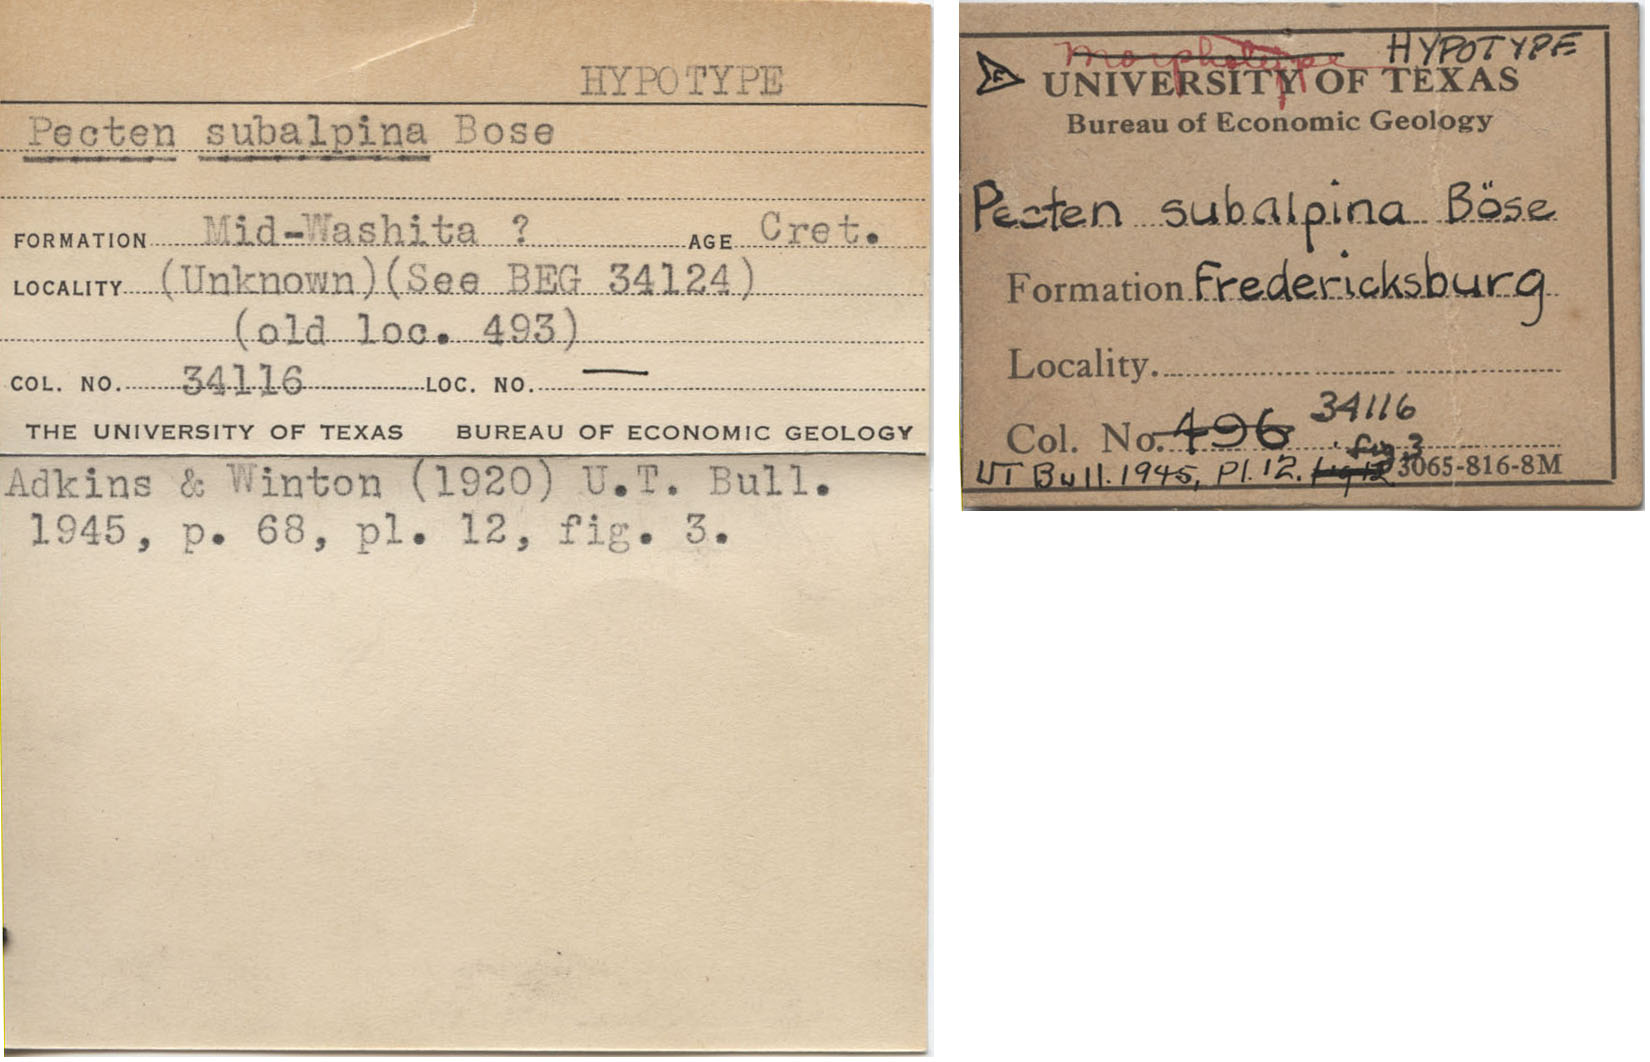 HYPOTYPE
Pecten subalpina Bose
FORMATION Mid-Washita ? AGE Cret.
LOCALITY (Unknown)(See BEG 34124)
(old loc. 493)
COL. NO. 34116 LOC. NO. —
THE UNIVERSITY OF TEXAS BUREAU OF ECONOMIC GEOLOGY
Adkins & Winton (1920) U.T. Bull.
1945, p. 68, pl. 12, fig. 3.
Morphotype HYPOTYPE
E UNIVERSITY OF TEXAS
Bureau of Economic Geology
Pecten subalpina Böse
Formation Fredericksburg
Locality.
34116
Col. No. 496
fig 3
UT Bull. 1945, Pl. 12. 3065-816-8M